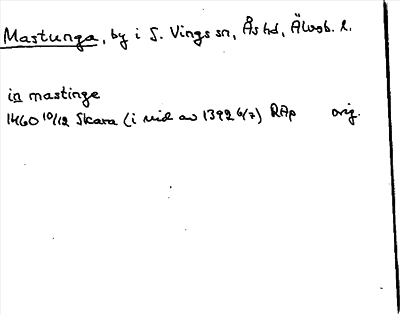 Mastunga, by i S. Vings sn, Ås hd, Älvsb. l.
in mastinge
1460 10/12 Skara (i vid av 1392 6/7) RAp orig.